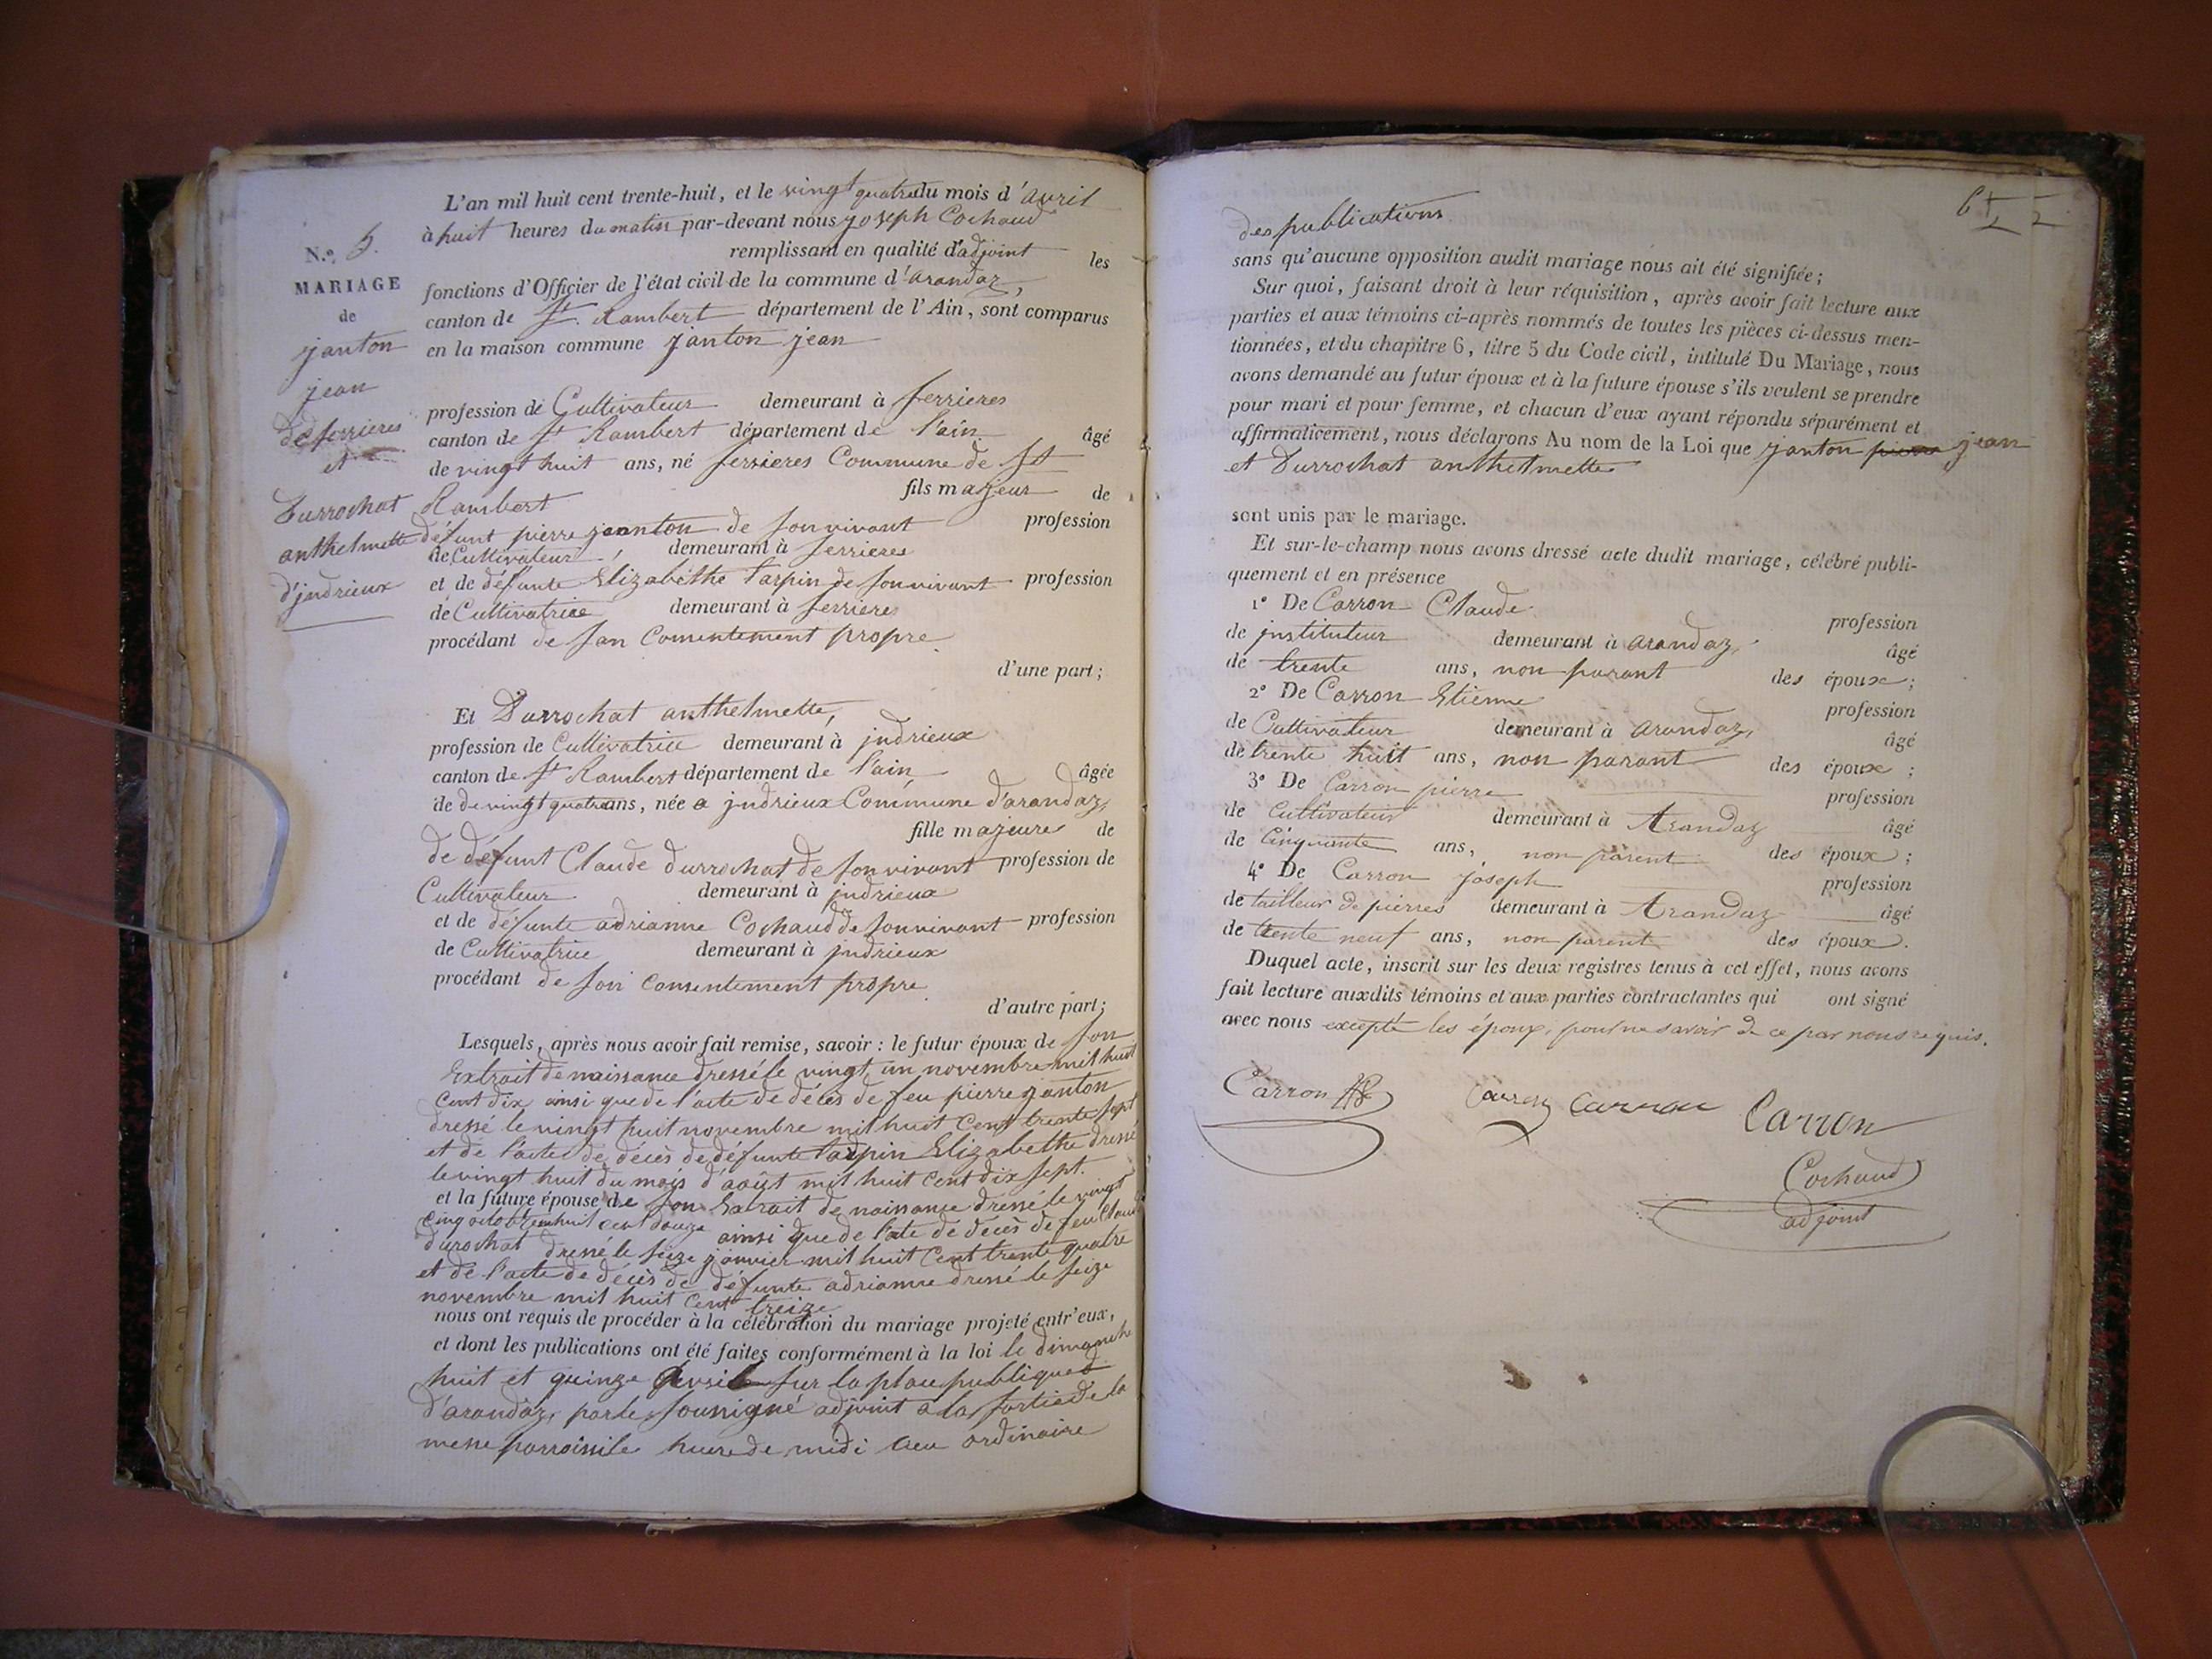 L'an mil huit cent trente-huit, et le vingt quatre du mois d'avril
à huit heures du matin par-devant nous joseph Cochaud
remplissant en qualité d'adjoint les
fonctions d'Officier de l'état civil de la commune d'arandaz,
canton de St. Rambert département de l'Ain, sont comparus
en la maison commune janton jean
profession de Cultivateur demeurant à ferrieres
canton de St Rambert département de l'ain âgé
de vingt huit ans, né ferrieres Commune de St
Rambert fils majeur de
défunt pierre jeanton de son vivant profession
de Cultivateur, demeurant à ferrieres
et de défunte Elizabéthe tarpin de son vivant profession
de Cultivatrice demeurant à ferrieres
procédant de son Consentement propre
d'une part;
N.º 5.
MARIAGE
de
janton
jean
de ferrieres
et
Durrochat
anthelmette
d'jndrieux
Et Durrochat anthelmette,
profession de Cultivatrice demeurant à jndrieux
canton de St Rambert département de l'ain âgée
de de vingt quatre ans, née a jndrieux Commune d'arandaz,
fille majeure de
de défunt Claude durrochat de son vivant profession de
Cultivateur demeurant à jndrieux
et de défunte adrianne Cochaud de son vivant profession
de Cultivatrice demeurant à jndrieux
procédant de son Consentement propre
d'autre part;
Lesquels, après nous avoir fait remise, savoir : le futur époux de son
Extrait de naissance dressé le vingt un novembre mil huit
cent dix ainsi que de l'acte de décès de feu pierre janton
dressé le vingt huit novembre mil huit Cent trente sept
et de l'acte de décès de défunte tarpin Elizabethe dressé
le vingt huit du mois d'août mil huit Cent dix sept.
et la future épouse de son Extrait de naissance dressé le vingt
cinq octobre mil huit cent douze ainsi que de l'ate de décès de feu Claude
durochat dressé le seize janvier mil huit Cent trente quatre
et de l'acte de décès de défunte adrianne dressé le seize
novembre mil huit Cent treize
nous ont requis de procéder à la célébration du mariage projeté entr'eux,
et dont les publications ont été faites conformément à la loi le dimanche
huit et quinze avril sur la place publique
d'arandaz, par le soussigné adjoint a la sortie de la
messe parroissile heure de midi ordinaire
6
des publications
sans qu'aucune opposition audit mariage nous ait été signifiée;
Sur quoi, faisant droit à leur réquisition, après avoir fait lecture aux
parties et aux témoins ci-après nommés de toutes les pièces ci-dessus men-
tionnées, et du chapitre 6, titre 5 du Code civil, intitulé Du Mariage, nous
avons demandé au futur époux et à la future épouse s'ils veulent se prendre
pour mari et pour femme, et chacun d'eux ayant répondu séparément et
affirmativement, nous déclarons Au nom de la Loi que janton pierre jean
et Durrochat anthelmette
sont unis par le mariage.
Et sur-le-champ nous avons dressé acte dudit mariage, célébré publi-
quement et en présence
1º De Carron Claude profession
de jnstituteur demeurant à arandaz, âgé
de trente ans, non parant des époux;
2º De Carron Etienne profession
de Cultivateur demeurant à arandaz, âgé
de trente huit ans, non parant des époux;
3º De Carron pierre profession
de Cultivateur demeurant à Arandaz âgé
de Cinquante ans, non parent des époux;
4º De Carron joseph profession
de tailleur de pierres demeurant à Arandaz âgé
de trente neuf ans, non parent des époux.
Duquel acte, inscrit sur les deux registres tenus à cet effet, nous avons
fait lecture auxdits témoins et aux parties contractantes qui ont signé
avec nous excepté les époux, pour ne savoir de ce par nous requis.
Carron Carron Carron Carron
Cochaud
adjoint